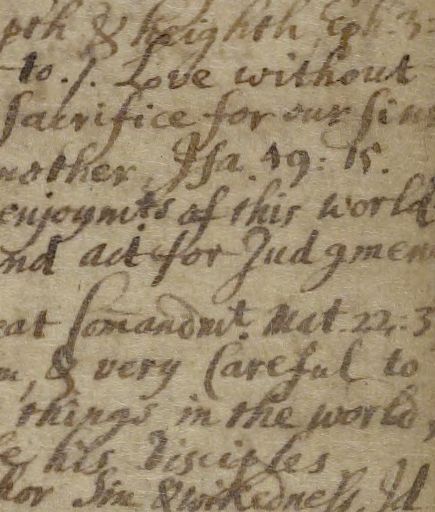 pth & heighth, Eph. 3:
to. 1. Love without
sacrifice for our sins
mother, Isa. 49: 15.
enjoymts of this world
nd act for Judgmen
eat Comandmt. Mat. 22: 3
m, & very Careful to
things in the world,
e his Disciples
hor Sin & wikedness,